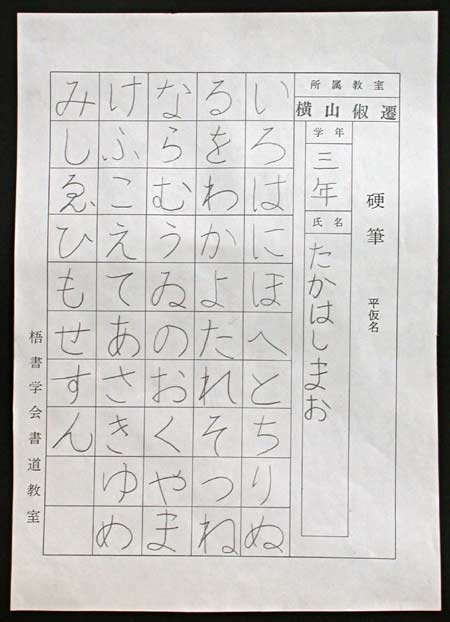 所属教室
横山俶遷
硬筆 平仮名
学年
三年
氏名
たかはしまお
いろはにほへとちりぬ
るをわかよたれそつね
ならむうゐのおくやま
けふこえてあさきゆめ
みしゑひもせすん
梧書学会書道教室